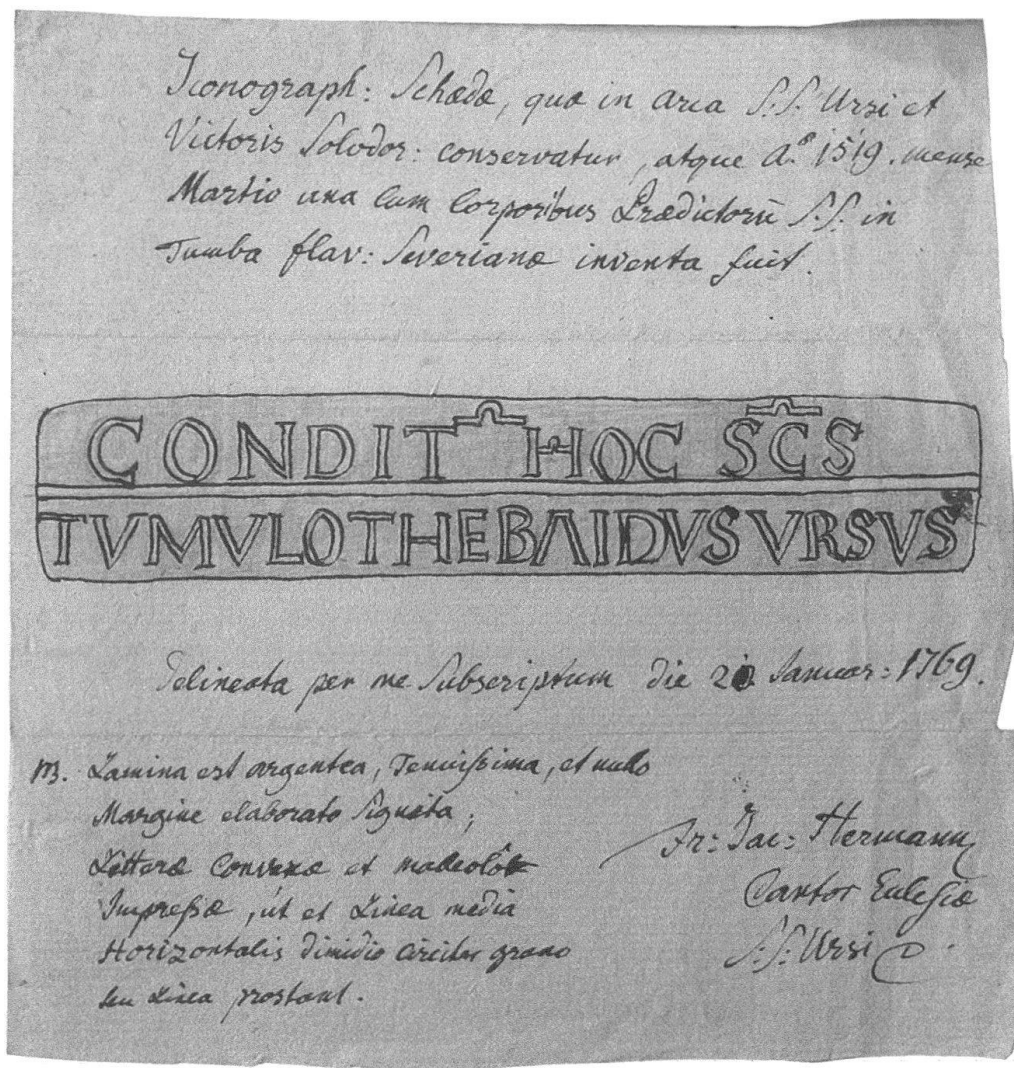 Iconograph: Schedæ, quæ in arca S.S. Ursi et
Victoris Solodor: conservatur, atque Aº 1519. mense
Martio una cum Corporibus Prædictorū S.S. in
Tumba flav: Severianæ inventa fuit.
CONDIT HOC SCS
TVMVLO THEBAIDVS VRSVS
Delineata per me Subscriptum die Januar: 1769.
Lamina est argentea, Tenuissima, et nullo
Margine elaborato Signata;
Litteræ Convexæ et
Impressæ, út et Linea media
Horizontalis dimidio circiter grano
seu Linea prostant.
Fr: Jac: Hermann
Cantor Eulesiæ
S.S: Ursi